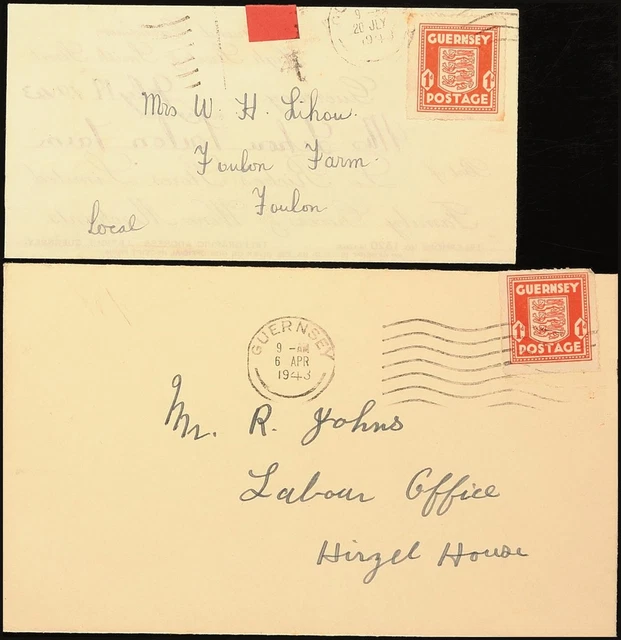 20 JLY
1943
GUERNSEY
1D 1D
POSTAGE
Mrs W. H. Lihou.
Foulon Farm.
Foulon
Local
GUERNSEY
9 - AM
6 APR
1943
GUERNSEY
1D 1D
POSTAGE
Mr. R. Johns
Labour Office
Hirzel House